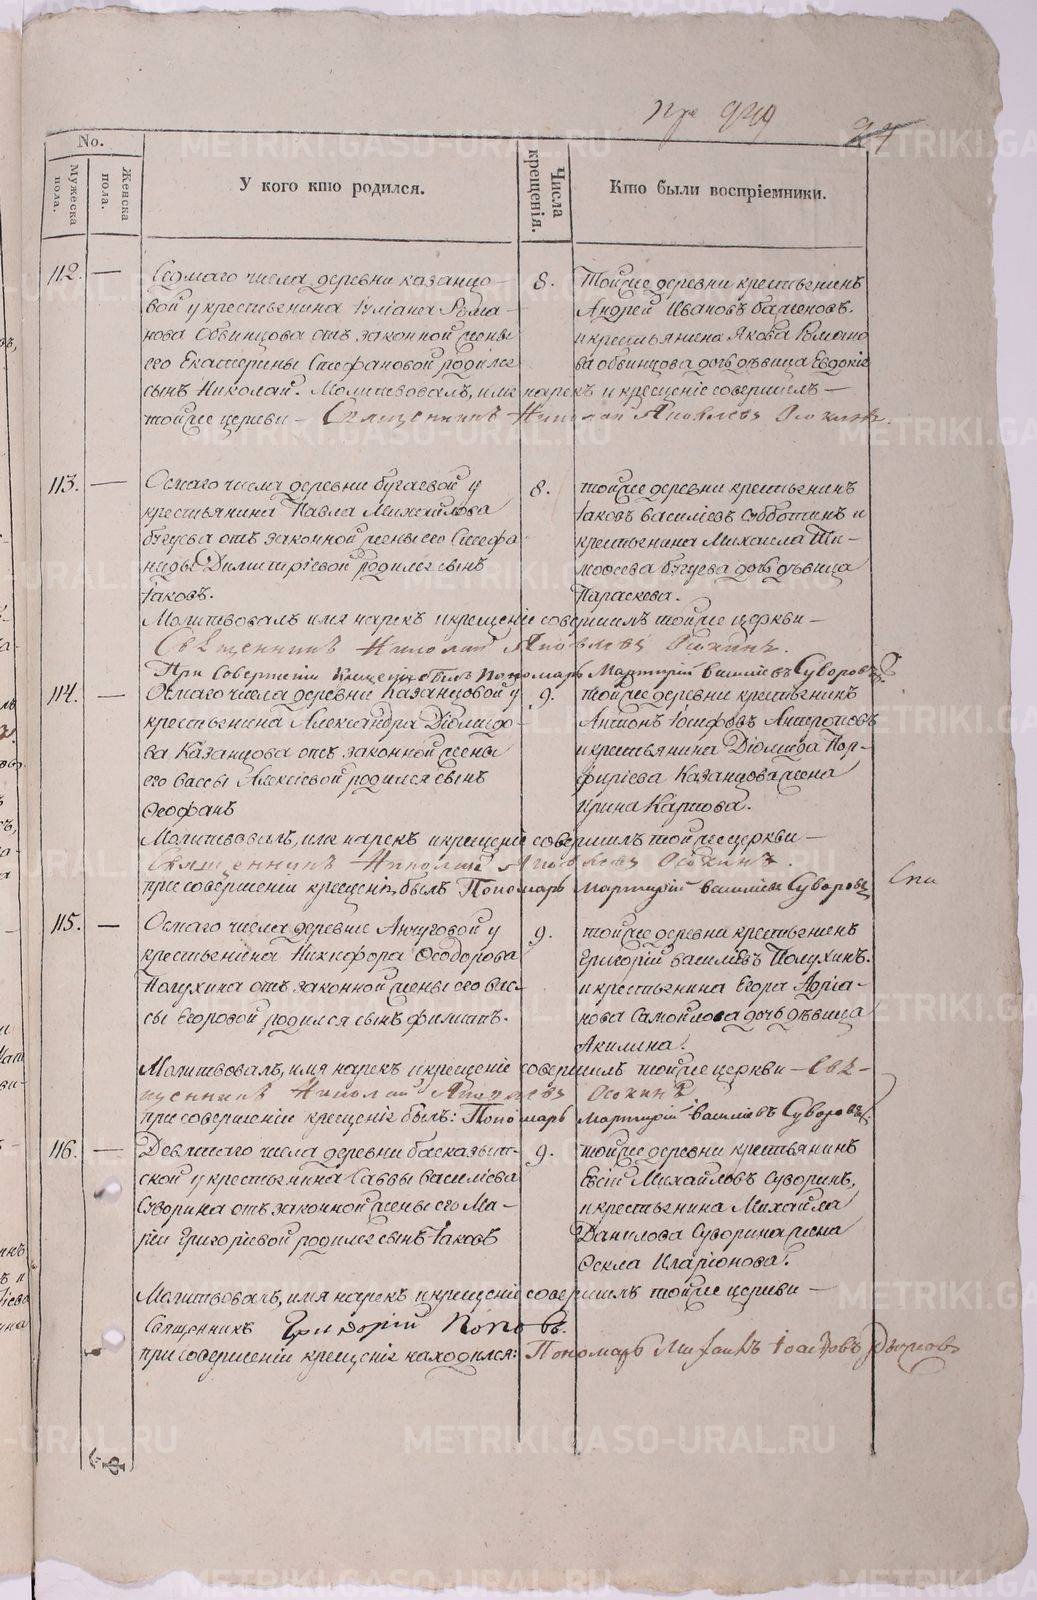 939
24
No.
Мужеска пола.
Женска пола.
У кого кто родился.
Числа крещенія.
Кто были воспріемники.
112. — Седмаго числа деревни казанцо-
вой у крестьянина Рома-
нова Обвинцова отъ законной жены
его Екатерины Стефановой родился
сынъ Николай. Молитвовалъ, имя нарекъ и крещеніе совершилъ —
тойже церкви — Священникъ Николай Яковлевъ
8. Тойже деревни крестьянинъ
Андрей Ивановъ Баженовъ.
и крестьянина Якова Романо
ва обвинцова дочь дѣвица Евдокія
113. — Осмаго числа деревни бугаевой у
крестьянина Павла Михайлова
бугуева отъ законной жены его Стефа
ниды Димитріевой родился сынъ
Іаковъ.
8. тойже деревни крестьянинъ
Іаковъ василіевъ субботинъ и
крестьянина Михаила Ти-
моѳеева бугуева дочь дѣвица
Параскева.
Молитвовалъ имя нарекъ и крещеніе совершилъ тойже церкви —
Священникъ Николай Яковлевъ Осокинъ.
При Совершеніи Крещенія былъ Пономарь Мартирій василіевъ Суворовъ
114. — Осмаго числа деревни Казанцовой у
крестьянина Александра Діомидо-
ва Казанцова отъ законной жены
его вассы Алексіевой родился сынъ
Ѳеофанъ
9. тойже деревни крестьянинъ
Антонъ Іосифовъ
и крестьянина Діомида Пор-
фиріева Казанцова жена
ирина Карпова.
Молитвовалъ, имя нарекъ и крещеніе совершилъ тойже церкви —
Священникъ Николай Яковлевъ Осокинъ.
при совершеніи крещенія, былъ Пономарь Мартирій василіевъ Суворовъ
115. — Осмаго числа деревни Анчуговой у
крестьянина Никифора Ѳеодорова
Полухина отъ законной жены его вас-
сы Егоровой родился сынъ филиппъ.
9. тойже деревни крестьянинъ
Григорій василіевъ Полухинъ.
и крестьянина Егора Адріа-
нова Самойлова дочь дѣвица
Акилина.
Молитвовалъ, имя нарекъ и крещеніе совершилъ тойже церкви — Свя-
щенникъ Николай Яковлевъ Осокинъ
при совершеніи крещенія былъ: Пономарь Мартирій василіевъ Суворовъ.
116. — Девятаго числа деревни
ской у крестьянина Саввы василіева
Суворина отъ законной жены его Ма-
ріи Григоріевой родился сынъ Іаковъ
9. тойже деревни крестьянинъ
Михайловъ Суворинъ,
и крестьянина Михаила
Данилова Суворина жена
Ѳекла Иларіонова.
Молитвовалъ, имя нарекъ и крещеніе совершилъ тойже церкви —
Священникъ Григорій Поповъ.
при совершеніи крещенія находился: Пономарь
METRIKI.GASO-URAL.RU